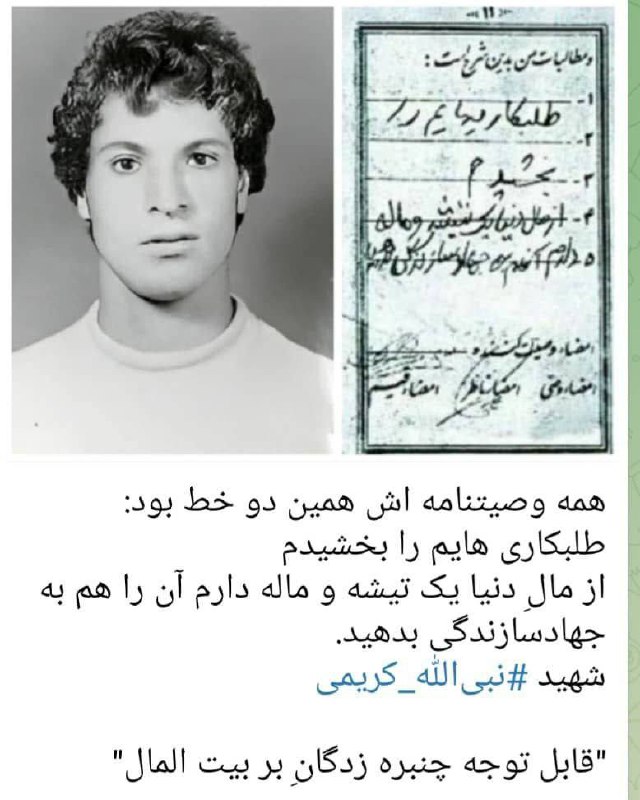 ۱۱
ومطالبات من بدین شرح است:
۱-
طلبکاریهایم را
۲-
۳- بخشیدم
۴- از مال دنیا یک تیشه و ماله
۵ دارم آنهم به جهاد سازندگی
امضاء وصیت کننده
امضاء وصی امضاء ناظر امضاء قیم
همه وصیتنامه اش همین دو خط بود:
طلبکاری هایم را بخشیدم
از مالِ دنیا یک تیشه و ماله دارم آن را هم به
جهادسازندگی بدهید.
شهید #نبی‌الله_کریمی
"قابل توجه چنبره زدگانِ بر بیت المال"